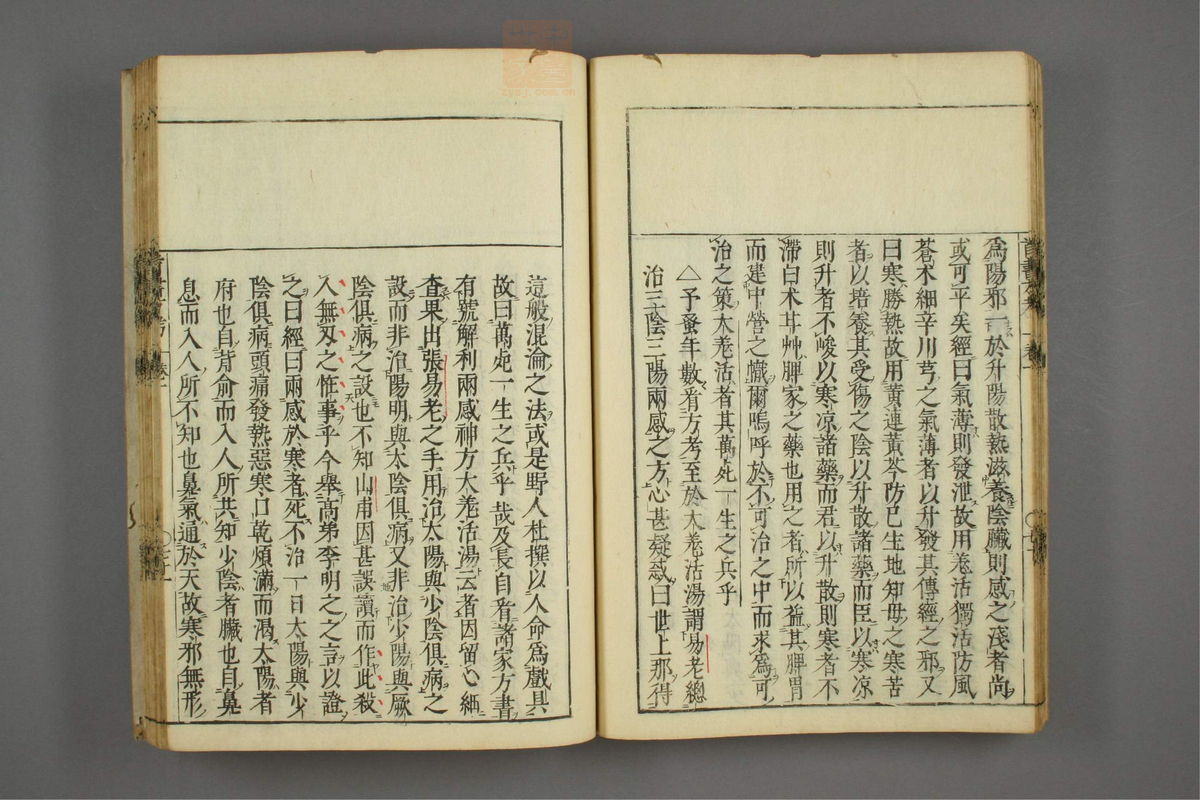 為陽邪一於升陽散熱滋養陰臟則感之淺者尚
或可平矣經曰氣薄則發泄故用羗活獨活防風
蒼朮細辛川芎之氣薄者以升發其傳經之邪又
曰寒勝熱故用黃連黃芩防已生地知母之寒苦
者以培養其受傷之陰以升散諸藥而臣以寒凉
則升者不峻以寒凉諸藥而君以升散則寒者不
滯白朮甘艸脾家之藥也用之者所以益其脾胃
而建中營之幟爾嗚呼於不可治之中而求為可
治之策大羗活者其萬死一生之兵乎
△予蚤年數看方考至於大羗活湯謂易老總
治三陰三陽兩感之方心甚疑惑曰世上那得
這般混淪之法或是野人杜撰以人命為戲具
故曰萬死一生之兵乎哉及長自看諸家方書
有號解利兩感神方大羗活湯云者因留心細
查果出張易老之手用治太陽與少陰俱病之
設而非治陽明與太陰俱病又非治少陽與厥
陰俱病之設也不知山甫因甚誤讀而作此殺
人無刄之怪事乎今舉高弟李明之之言以證
之曰經曰兩感於寒者死不治一日太陽與少
陰俱病頭痛發熱惡寒口乾煩滿而渴太陽者
府也自背俞而入人所共知少陰者臟也自鼻
息而入人所不知也鼻氣通於天故寒邪無形